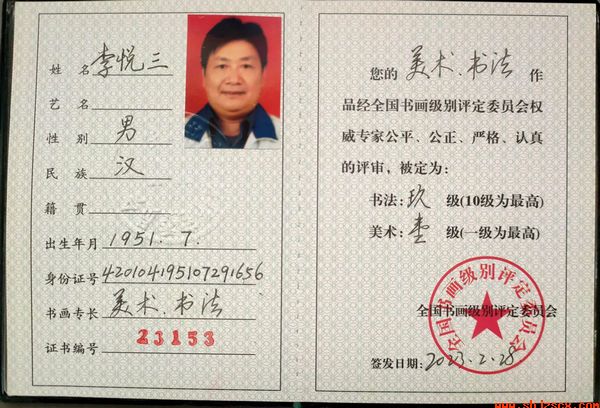 姓名 李悦三
艺名
性别 男
民族 汉
籍贯
出生年月 1951.7.
身份证号 420104195107291656
书画专长 美术、书法
证书编号 23153
您的 美术、书法 作
品经全国书画级别评定委员会权
威专家公平、公正、严格、认真
的评审，被定为：
书法：玖 级(10级为最高)
美术：壹 级(一级为最高)
全国书画级别评定委员会
全国书画级别评定委员会
签发日期：2023.2.28
www.shjzscx.com